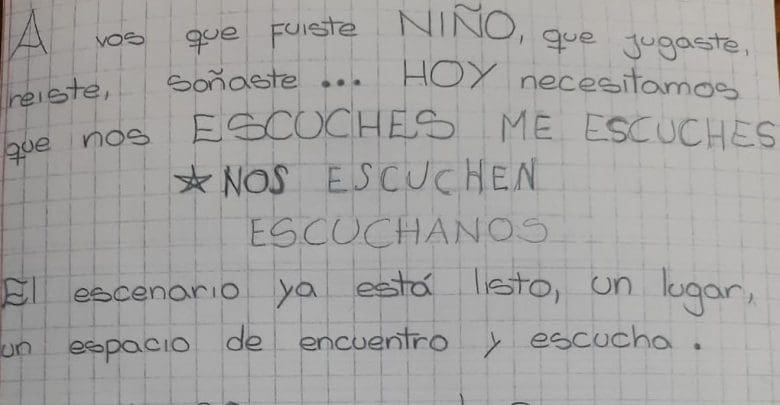 A vos que fuiste NIÑO, que jugaste,
reiste, soñaste ... HOY necesitamos
que nos ESCUCHES ME ESCUCHES
☆ NOS ESCUCHEN
ESCUCHANOS
El escenario ya está listo, un lugar,
un espacio de encuentro y escucha.